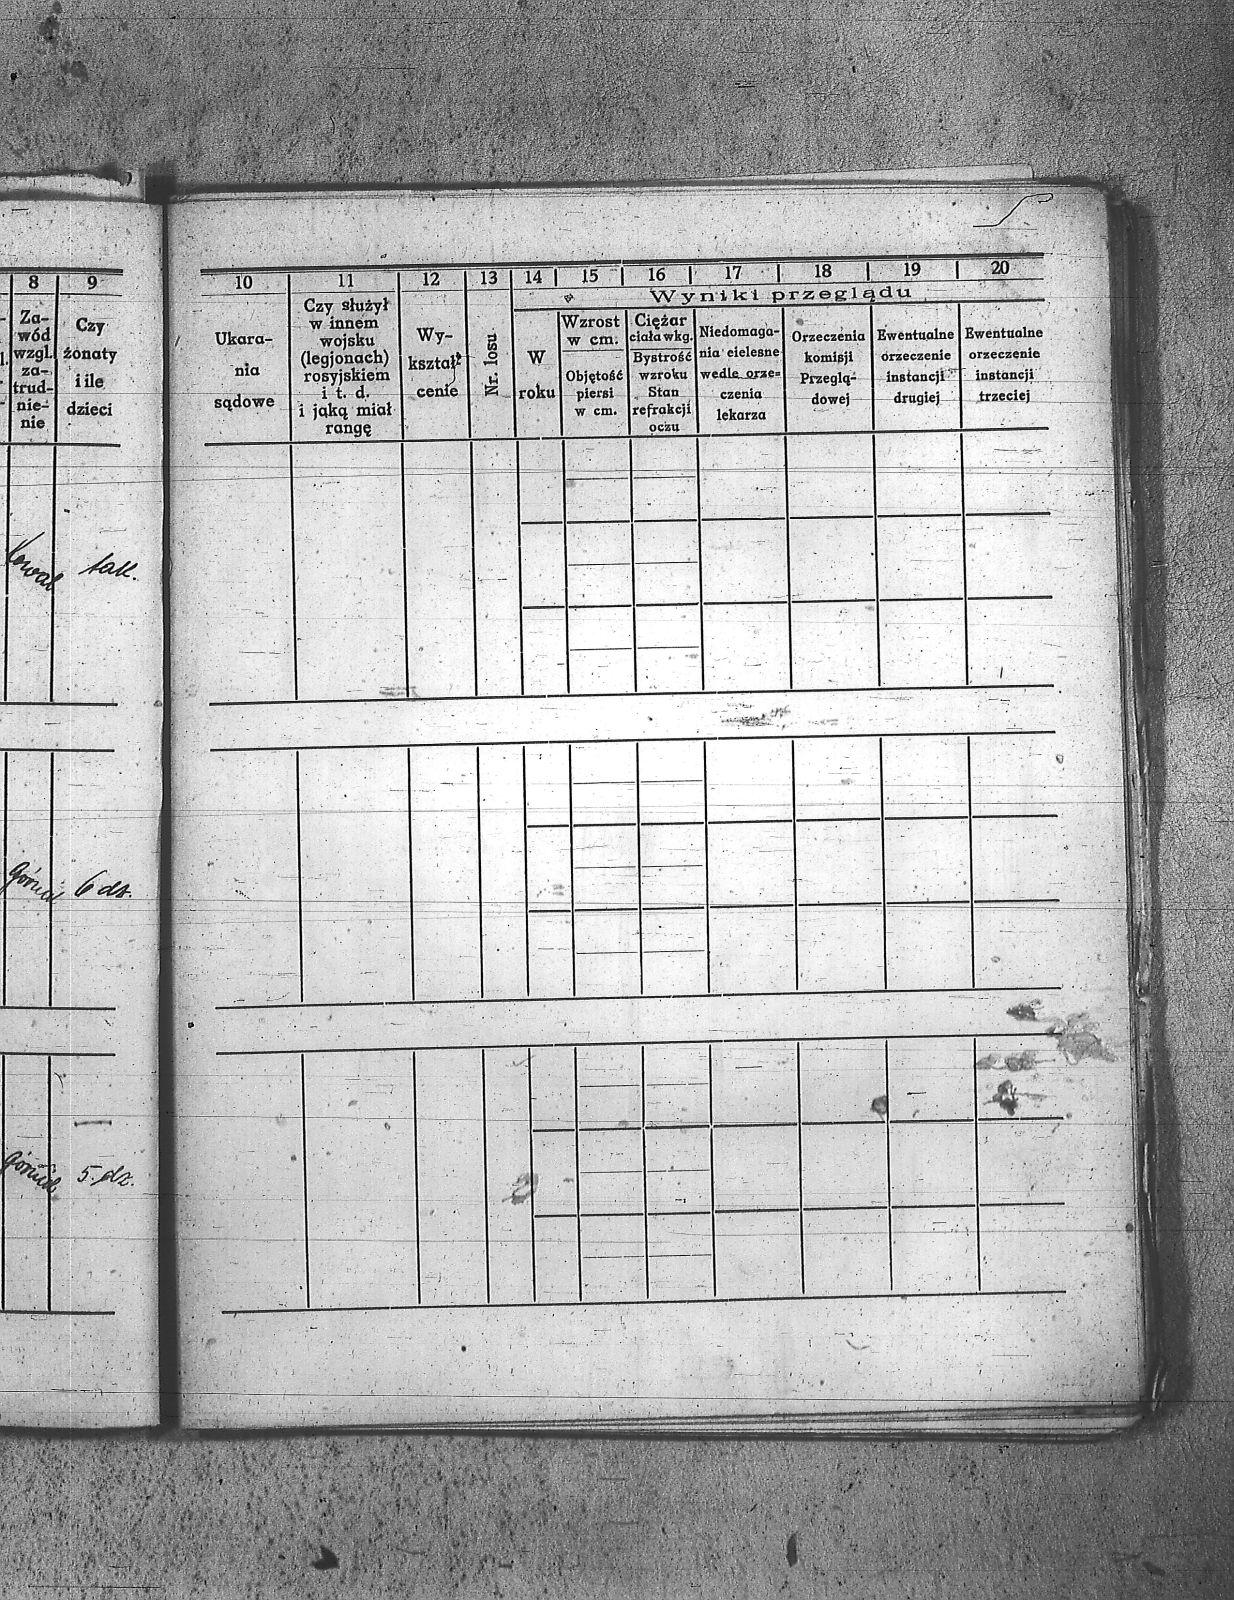 8
9
Za-
wód
wzgl.
za-
trud-
nie-
nie
Czy
żonaty
i ile
dzieci
Kowal
tak.
górnik
6 dz.
górnik
5. dz.
10
11
12
13
14
15
16
17
18
19
20
Wyniki przeglądu
Ukara-
nia
sądowe
Czy służył
w innem
wojsku
(legjonach)
rosyjskiem
i t. d.
i jąką miał
rangę
Wy-
kształ-
cenie
Nr. losu
W
roku
Wzrost
w cm.
Objętość
piersi
w cm.
Ciężar
ciała w kg.
Bystrość
wzroku
Stan
refrakcji
oczu
Niedomaga-
nia cielesne
wedle orze-
czenia
lekarza
Orzeczenia
komisji
Przeglą-
dowej
Ewentualne
orzeczenie
instancji
drugiej
Ewentualne
orzeczenie
instancji
trzeciej